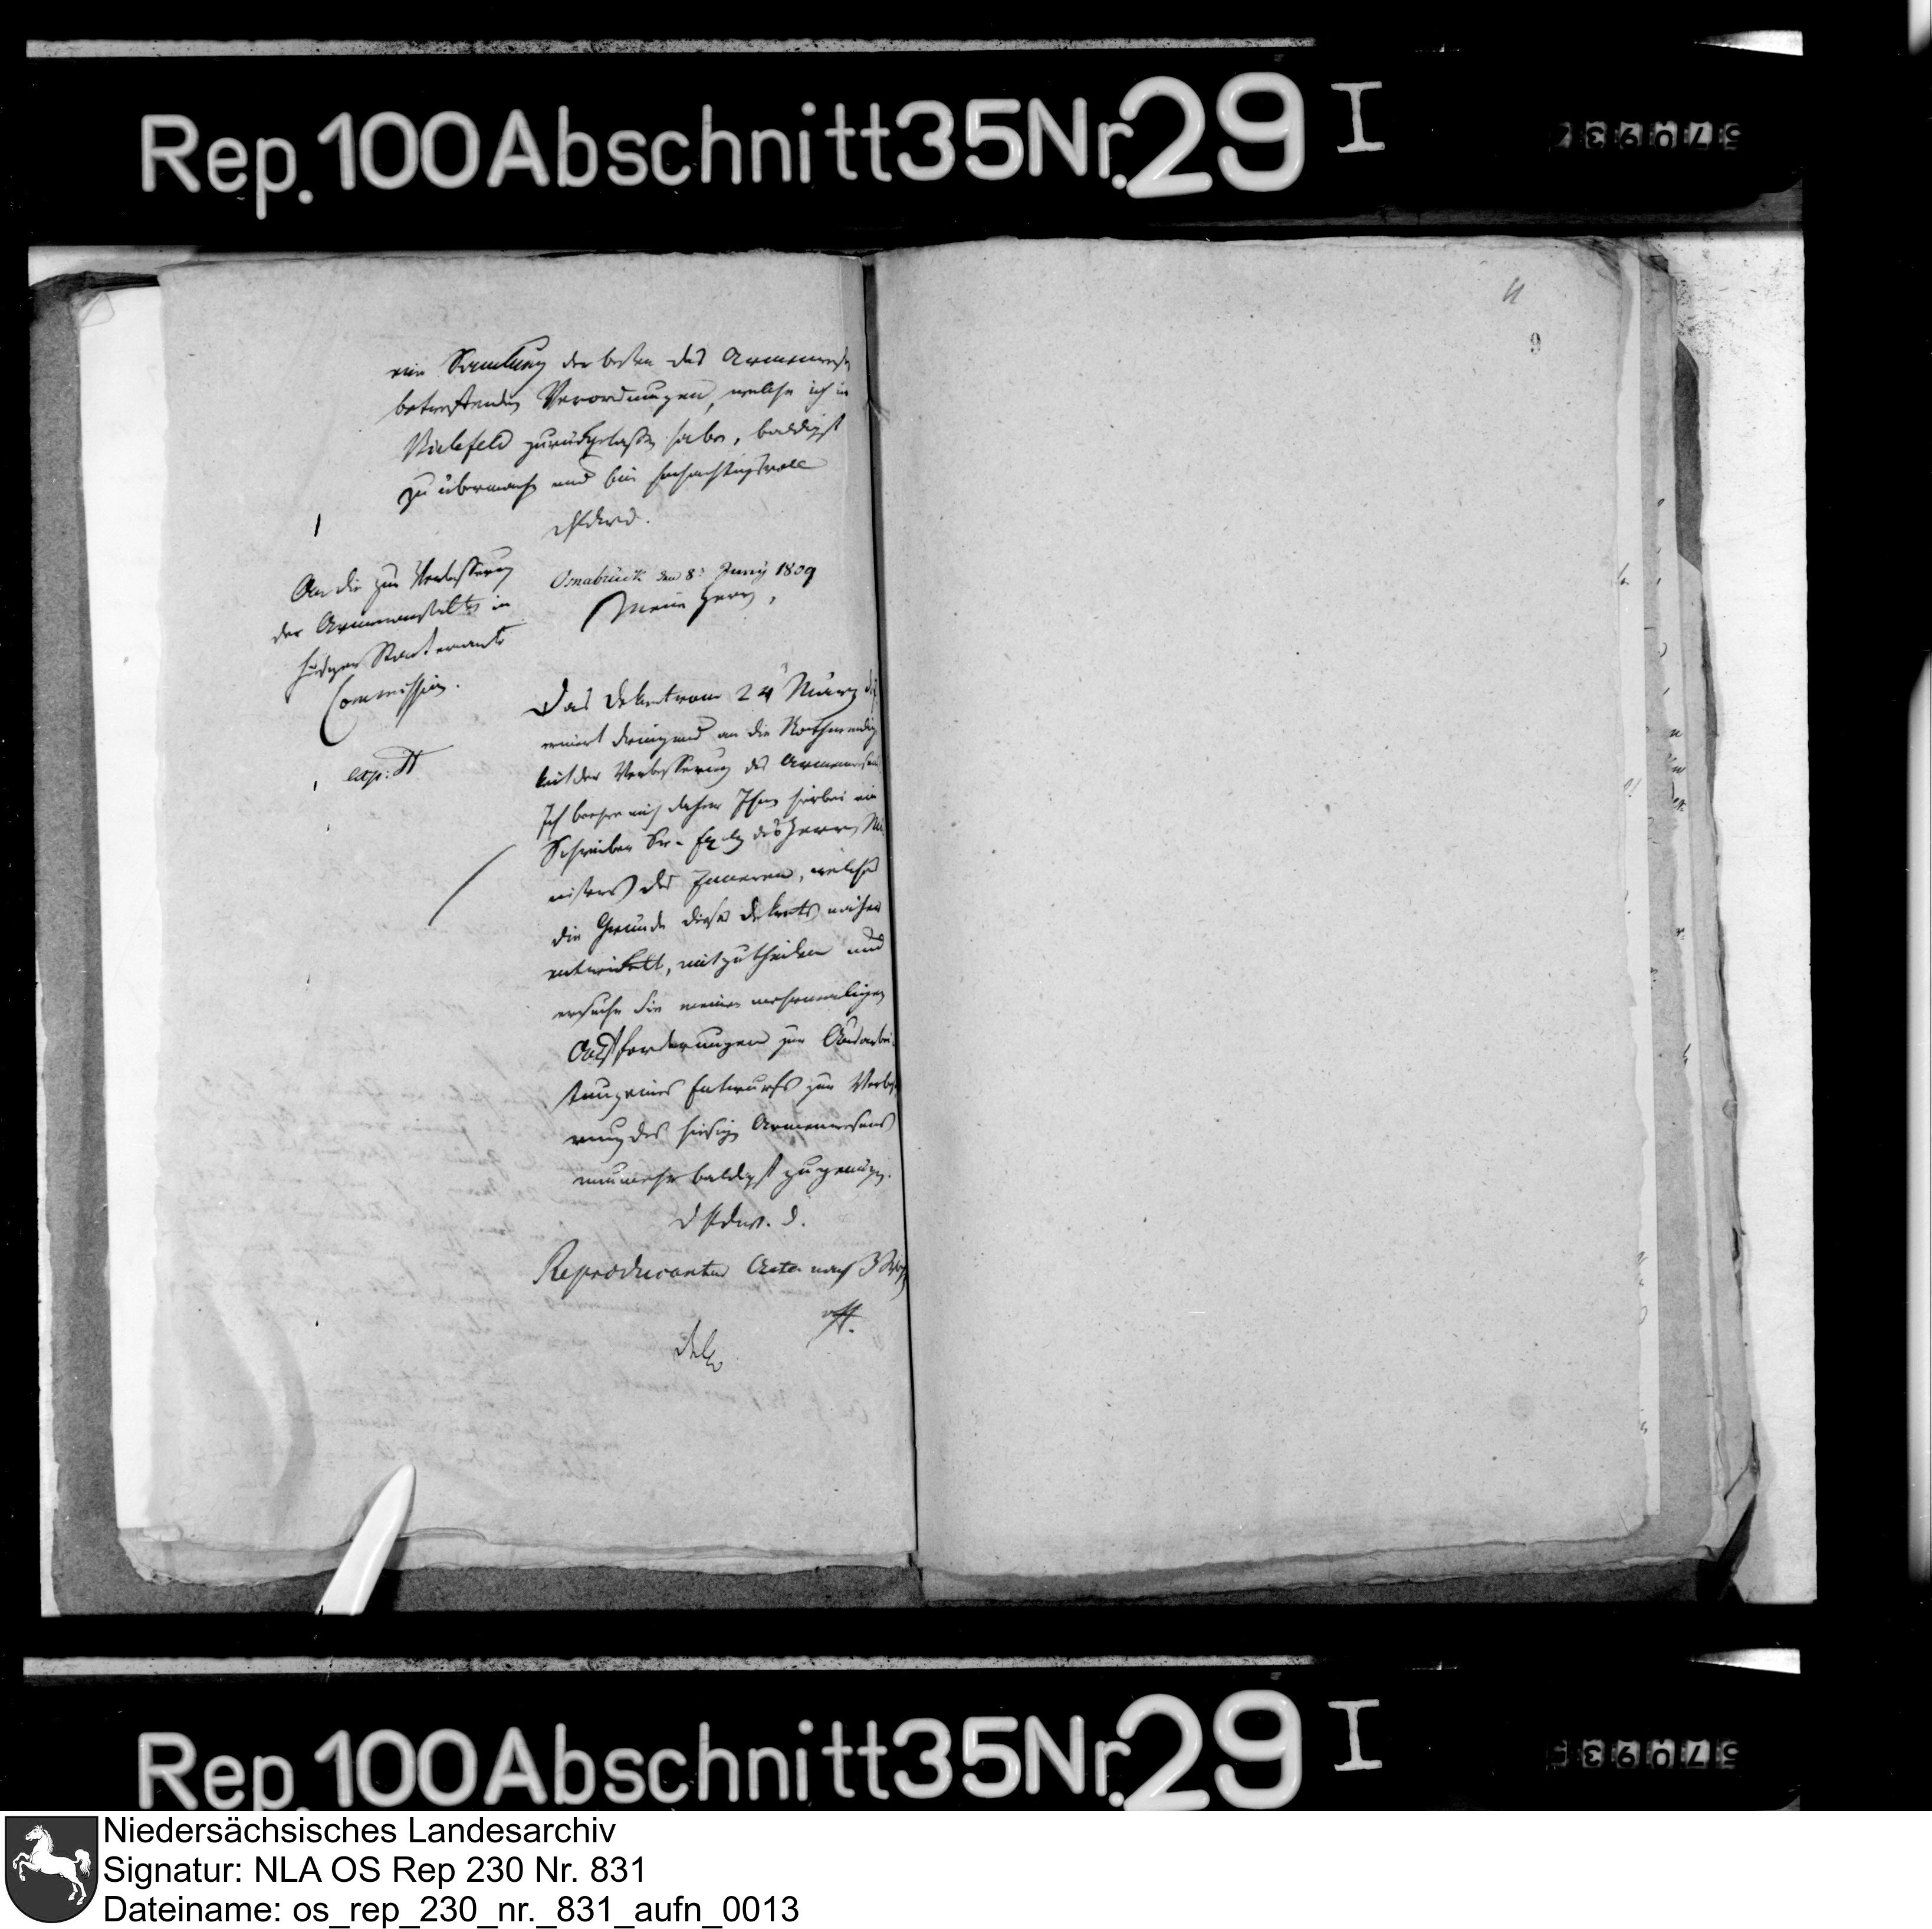 Rep. 100 Abschnitt 35 Nr. 29 I
570937
11
9
eine Samlung der besten das Armenwesen
betreffenden Verordnungen, welche ich in
Bielefeld zurückgelaßen habe, baldigst
zu übermachen und bin hochachtungsvoll
An die zur Verbesserung
der Armenanstalten in
hiesigen
Commission.
exp:
Osnabrück den 8t Juny 1809
Meine Herrn,
Das Dekret vom 24 März
erinert dringend an die Nothwendig
keit der Verbesserung des Armenwesens
Ich beehre mich daher Ihnen hierbei ein
Schreiben Sr. des Herrn Mi
nisters des Inneren, welches
die Gründe dieses Dekrets näher
entwickelt, mitzutheilen und
ersuche Sie meinen mehrmaligen
Aufforderungen zur Ausarbei
tung eines Entwurfs zur Verbeße
rung des hiesigen Armenwesens
nunmehr baldigst zu genügen.
Reproducantur Acta nach 3
Rep. 100 Abschnitt 35 Nr. 29 I
Niedersächsisches Landesarchiv
Signatur: NLA OS Rep 230 Nr. 831
Dateiname: os_rep_230_nr._831_aufn_0013